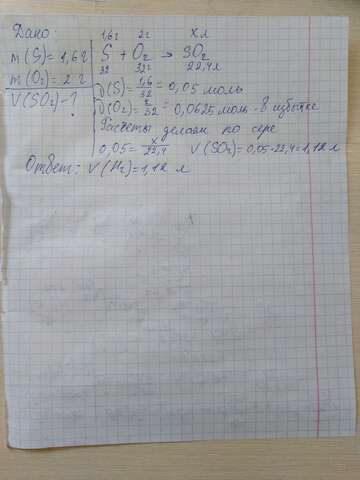 Дано:
m(S)=1,6г
m(O₂)=2 г
V(SO₂)-?
1,6г 2г xл
S + O₂ → SO₂
32 32г 22,4л
ν(S)=1,6/32=0,05 моль
ν(O₂)=2/32=0,0625 моль - в избытке
Расчеты делаем по сере
0,05=x/22,4 V(SO₂)=0,05·22,4=1,12 л
Ответ: V(H₂)=1,12 л